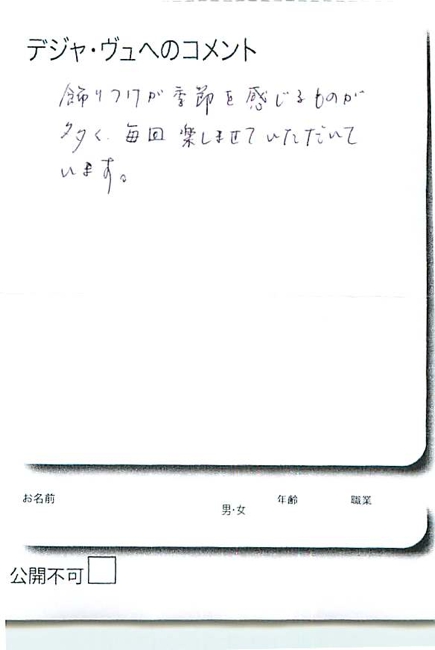 デジャ・ヴュへのコメント
飾りつけが季節を感じるものが
多く、毎回楽しませていただいて
います。
お名前
男・女
年齢
職業
公開不可